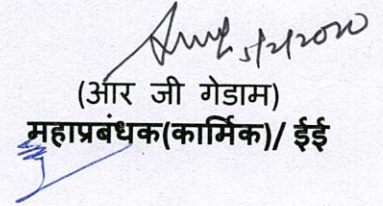 5/2/2020
(आर जी गेडाम)
महाप्रबंधक(कार्मिक)/ ईई